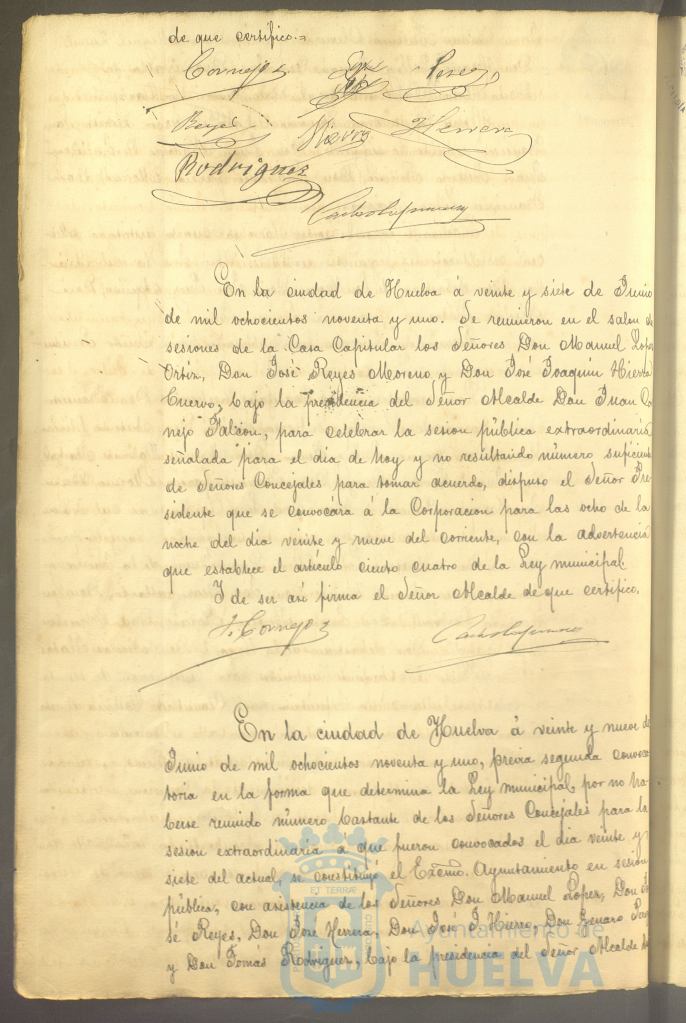 de que certifico.=
Cornejo
Perez
Reyes Hierro Herrera
Rodriguez
En la ciudad de Huelva á veinte y siete de Junio
de mil ochocientos noventa y uno. Se reunieron en el salon de
sesiones de la Casa Capitular los Señores Don Manuel Lopez
Ortiz, Don José Reyes Moreno y Don José Joaquín Hierro
Cuervo, bajo la presidencia del Señor Alcalde Don Juan Cor
nejo Falcon, para celebrar la sesion pública extraordinaria
señalada para el dia de hoy y no resultando número suficiente
de Señores Concejales para tomar acuerdo, dispuso el Señor Pre
sidente que se convocára á la Corporacion para las ocho de la
noche del dia veinte y nueve del corriente, con la advertencia
que establece el artículo ciento cuatro de la Ley municipal.
I de ser asi firma el Señor Alcalde de que certifico.
J. Cornejo
En la ciudad de Huelva á veinte y nueve de
Junio de mil ochocientos noventa y uno, previa segunda convoca
toria en la forma que determina la Ley municipal, por no ha
berse reunido número bastante de los Señores Concejales para la
sesion extraordinaria a que fueron convocados el dia veinte y
siete del actual, se constituyó el Excmo. Ayuntamiento en sesion
pública, con asistencia de los Señores Don Manuel Lopez, Don Jo
sé Reyes, Don José Herrera, Don José J. Hierro, Don Genaro Perez
y Don Tomás Rodriguez, bajo la presidencia del Señor Alcalde
ET TERRÆ
Ayuntamiento de
HUELVA